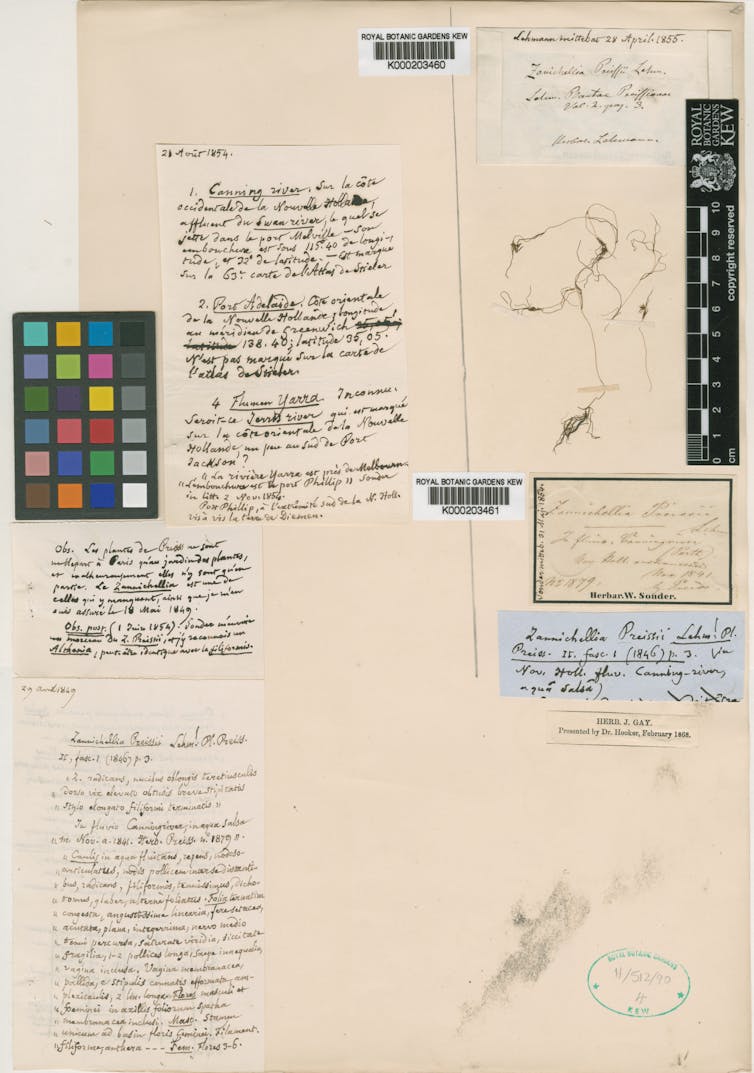 ROYAL BOTANIC GARDENS KEW
K000203460
Lehmann mittebat 28 April. 1855.
Zanichellia Preissii Lehm.
Lehm. Plantae Preissianae
Vol. 2. pag. 3.
Lehmann.
ROYAL
BOTANIC
GARDENS
KEW
0 1 2 3 4 5 6 7 8 9 10
cm
copyright reserved
21 Août 1854.
1. Canning river, sur la côte
occidentale de la Nouvelle Hollande,
affluent du Swan river, le quel se
jette dans le port Melville – son
embouchure est sous 115.40 de longi-
tude, et 32° de latitude. – Est marqué
sur la 63e carte de l'Atlas de Stieler
2. Port Adelaide. Côte orientale
de la Nouvelle Hollande; longitude
au méridien de Greenwich
latitude 138.40; latitude 35,05.
N'est pas marqué sur la carte de
l'atlas de Stieler.
4 Flumen Yarra. Inconnu.
Seroit-ce river qui est marqué
sur la côte orientale de la Nouvelle
Hollande, un peu au sud de Port
Jackson?
"La rivière Yarra est près de Melbourn.
"L'embouchure est le port Phillip" Sonder
in litt. 2 Nov. 1854.
Port Phillip, à l'extrémité sud de la N. Holl.
vis à vis la terre de Diemen.
ROYAL BOTANIC GARDENS KEW
K000203461
Sonder mitteb. 31 Mai 1854.
Zannichellia Preissii
Lehm
In fluv. Canningriver
Nov. 1841
No 1879.
Herbar. W. Sonder.
Zannichellia Preissii Lehm! Pl.
Preiss. II. fasc. 1 (1846) p. 3. in
Nov. Holl. fluv. Canning-river,
aquâ salsâ)
HERB. J. GAY.
Presented by Dr. Hooker, February 1868.
Obs. Les plantes de Preiss ne sont
nullepart à Paris qu'au jardin des plantes,
et malheureusement elles n'y sont qu'en
partie. Le Zannichellia est une de
celles qui y manquent, ainsi que je m'en
suis assuré le 18 Mai 1849.
Obs. post. (1 Juin 1854). Sonder m'envoie
un morceau du Z. Preissii, et j'y reconnais un
Althenia, peut-être identique avec le filiformis.
29 avril 1849
Zannichellia Preissii Lehm! Pl. Preiss.
II, fasc. 1 (1846) p. 3.
"Z. radicans, nucibus oblongis teretiusculis
" dorso vix elevato obtusis breve stipitatis
" stylo elongato filiformi terminatis."
In fluvio Canningriver, in aqua salsa
m. Nov. a. 1841. Herb. Preiss. n. 1879 ".
" Caulis in aqua fluitans, repens, nodoso-
" articulatus, nodis pollicem invicem distanti-
" bus, radicans, filiformis, tenuissimus, dicho-
" tomus, glaber, alterne foliatus. Folia ternatim
" congesta, angustissime linearia, fere setacea,
" acutata, plana, integerrima, nervo medio
" tenui percursa, saturate viridia, siccitate
" fragilia, 1-2 pollices longa, saepe inaequalia,
" vagina inclusa. Vagina membranacea,
" pallida, e stipulis connatis efformata, am-
" plexicaulis, 2 lin. longa. Flores masculi et
" foeminei in axillis foliorum spatha
" membranacea inclusi. Masc. Stamen
" unicum ad basin floris feminei. Filament.
" filiforme, anthera - - - Fem. Flores 3-6.
ROYAL BOTANIC GARDENS
11/512/90
H
KEW